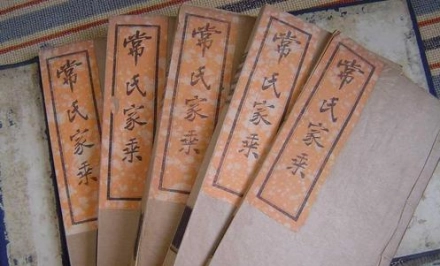 常氏家乘
常氏家乘
常氏家乘
常氏家乘
常氏家乘